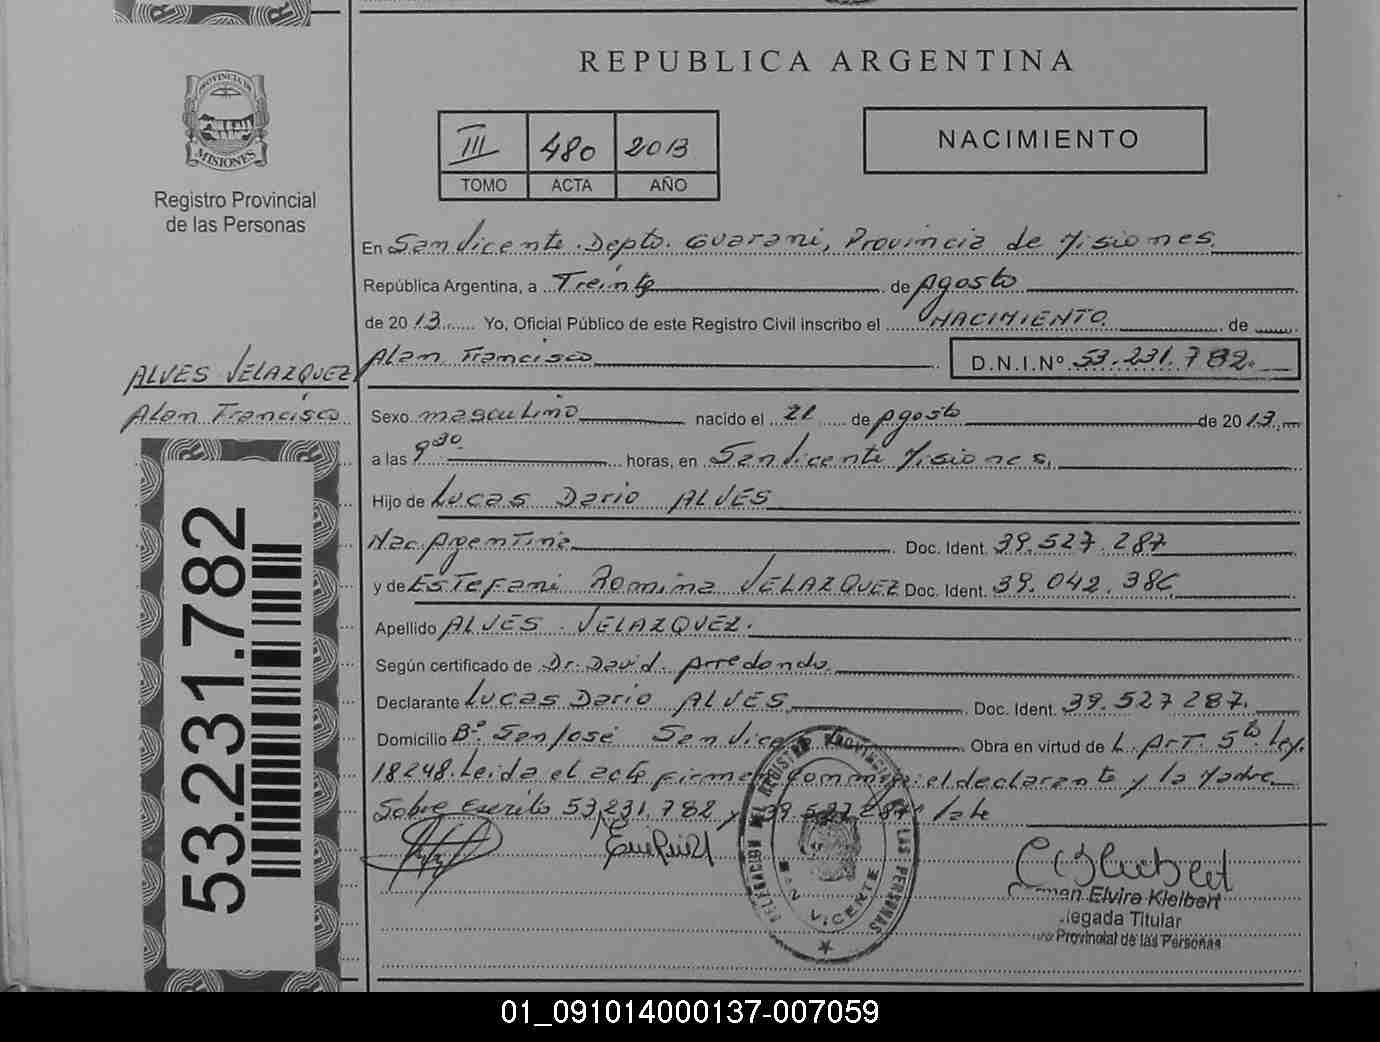 REPUBLICA ARGENTINA
PROVINCIA DE
MISIONES
Registro Provincial
de las Personas
III 480 2013
TOMO ACTA AÑO
NACIMIENTO
En San Vicente. Depto. Guarani, Provincia de Misiones
República Argentina, a Treinta de Agosto
de 2013 Yo, Oficial Público de este Registro Civil inscribo el NACIMIENTO de
ALVES VELAZQUEZ
Alan Francisco D.N.I.Nº 53.231.782.
Alan Francisco
Sexo masculino nacido el 21 de Agosto de 2013
a las 9 30 horas, en San Vicente Misiones.
Hijo de Lucas Dario ALVES
Nac. Argentina Doc. Ident. 39.527.287
y de ESTEFANI Romina VELAZQUEZ Doc. Ident. 39.042.386
Apellido ALVES VELAZQUEZ.
Según certificado de Dr. David Arredondo
Declarante Lucas Dario ALVES Doc. Ident. 39.527287.
Domicilio Bº San José San Vicente Obra en virtud de L. ArT. 5to Ley.
18248. Leida el acta firman conmigo: el declarante y la Madre
Sobre escrito 53.231.782 y 39.527.287 Vale
53.231.782
DELEGACION DEL REGISTRO PROVINCIAL DE LAS PERSONAS
SAN VICENTE
Carmen Elvira Kleibert
Delegada Titular
Provincial de las Personas
01_091014000137-007059